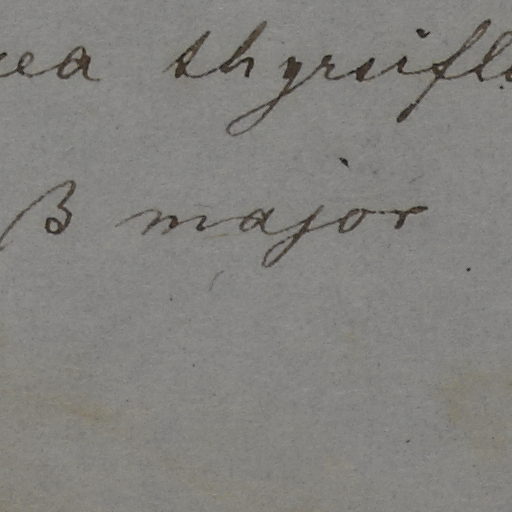 ea thyrsifl
β major